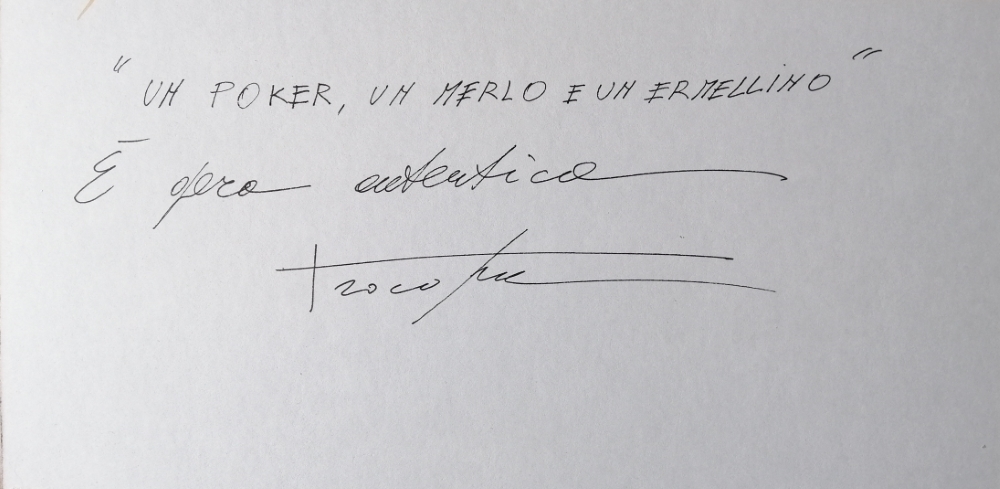 "UN POKER, UN MERLO E UN ERMELLINO"
È opera autentica